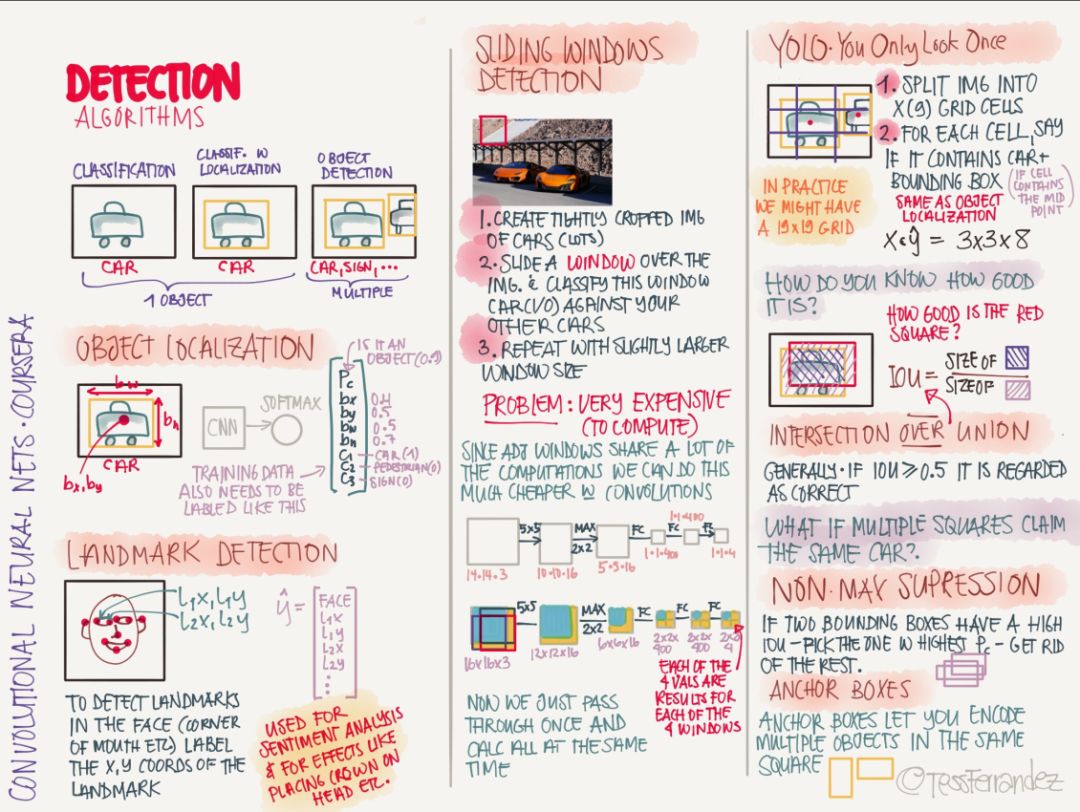 CONVOLUTIONAL NEURAL NETS · COURSERA
DETECTION
ALGORITHMS
CLASSIFICATION
CLASSIF. W
LOCALIZATION
OBJECT
DETECTION
CAR
CAR
CAR, SIGN, ...
1 OBJECT
MULTIPLE
OBJECT LOCALIZATION
bw
bh
CAR
bx, by
CNN
SOFTMAX
IS IT AN
OBJECT (0.9)
Pc
bx 0.4
by 0.5
bw 0.5
bh 0.7
C1 CAR (1)
C2 PEDESTRIAN (0)
C3 SIGN (0)
TRAINING DATA
ALSO NEEDS TO BE
LABLED LIKE THIS
LANDMARK DETECTION
L1X, L1Y
L2X, L2Y
ŷ =
FACE
L1X
L1Y
L2X
L2Y
:
TO DETECT LANDMARKS
IN THE FACE (CORNER
OF MOUTH ETC) LABEL
THE X,Y COORDS OF THE
LANDMARK
USED FOR
SENTIMENT ANALYSIS
& FOR EFFECTS LIKE
PLACING CROWN ON
HEAD ETC.
SLIDING WINDOWS
DETECTION
1. CREATE TIGHTLY CROPPED IMG
OF CARS (LOTS)
2. SLIDE A WINDOW OVER THE
IMG. & CLASSIFY THIS WINDOW
CAR (1/0) AGAINST YOUR
OTHER CARS
3. REPEAT WITH SLIGHTLY LARGER
WINDOW SIZE
PROBLEM: VERY EXPENSIVE
(TO COMPUTE)
SINCE ADJ WINDOWS SHARE A LOT OF
THE COMPUTATIONS WE CAN DO THIS
MUCH CHEAPER W CONVOLUTIONS
5x5
MAX
2x2
FC
FC
FC
1·1·400
14·14·3
10·10·16
5·5·16
1·1·400
1·1·4
5x5
MAX
2x2
FC
FC
FC
16x16x3
12x12x16
6x6x16
2x2x
400
2x2x
400
2x2x
4
EACH OF THE
4 VALS ARE
RESULTS FOR
EACH OF THE
4 WINDOWS
NOW WE JUST PASS
THROUGH ONCE AND
CALC ALL AT THE SAME
TIME
YOLO · You Only Look Once
1. SPLIT IMG INTO
X(9) GRID CELLS
2. FOR EACH CELL, SAY
IF IT CONTAINS CAR +
BOUNDING BOX
(IF CELL
CONTAINS
THE MID
POINT)
SAME AS OBJECT
LOCALIZATION
IN PRACTICE
WE MIGHT HAVE
A 19x19 GRID
ŷ = 3x3x8
HOW DO YOU KNOW HOW GOOD
IT IS?
HOW GOOD IS THE RED
SQUARE?
IOU =
SIZE OF
SIZE OF
INTERSECTION OVER UNION
GENERALLY · IF IOU ≥ 0.5 IT IS REGARDED
AS CORRECT
WHAT IF MULTIPLE SQUARES CLAIM
THE SAME CAR?.
NON·MAX SUPRESSION
IF TWO BOUNDING BOXES HAVE A HIGH
IOU - PICK THE ONE W HIGHEST Pc - GET RID
OF THE REST.
ANCHOR BOXES
ANCHOR BOXES LET YOU ENCODE
MULTIPLE OBJECTS IN THE SAME
SQUARE
@TessFerrandez